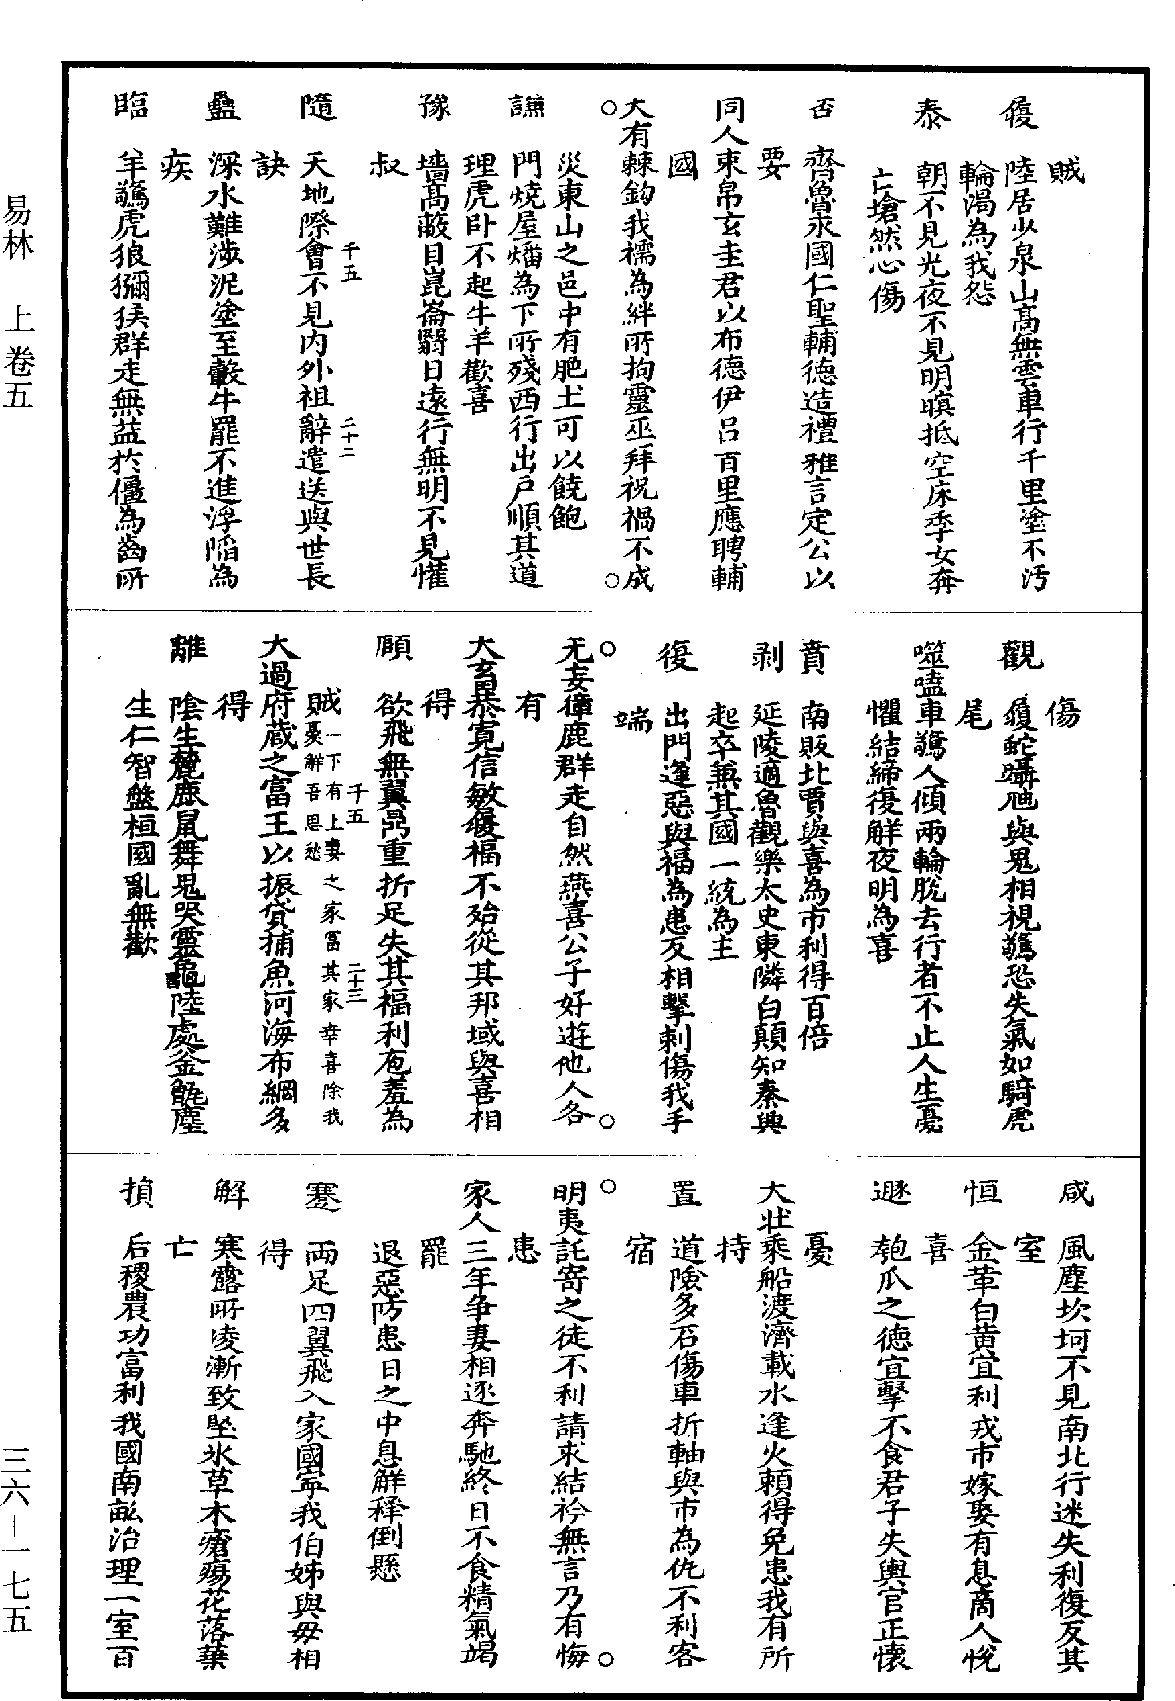 賊
履 陸居少泉山高無雲車行千里塗不汚
輪渴為我怨
泰 朝不見光夜不見明暝抵空床季女奔
亡愴然心傷
否 齊魯求國仁聖輔德造禮雅言定公以
要
同人束帛玄圭君以布德伊呂百里應聘輔
國
○大有棘鈎我襦為絆所拘靈巫拜祝禍不成○
災東山之邑中有肥土可以饒飽
謙 門燒屋燔為下所殘西行出戶順其道
理虎臥不起牛羊歡喜
豫 墻高蔽目崑崙翳日遠行無明不見懽
叔
千五 二十二
隨 天地際會不見內外祖辭遣送與世長
訣
蠱 深水難涉泥塗至轂牛罷不進浮陷為
疾
臨 羊驚虎狼獼猴群走無益於僵為齒所
傷
觀 蝮蛇躡虺與鬼相視驚恐失氣如騎虎
尾
噬嗑車驚人傾兩輪脫去行者不止人生憂
懼結締復解夜明為喜
賁 南販北賈與喜為市利得百倍
剥 延陵適魯觀樂太史東隣白顛知秦興
起卒兼其國一統為主
復 出門逢惡與福為患反相擊刺傷我手
端
○无妄㒓鹿群走自然燕喜公子好遊他人各○
有
大畜恭寬信敏履福不殆從其邦域與喜相
得
頤 欲飛無翼鼎重折足失其福利庖羞為
千五 二十三
賊一下有上妻之家冨其家幸喜除我
憂解吾思愁
大過府藏之富王以振貸捕魚河海布網多
得
離 陰生麓鹿鼠舞鬼哭靈龜陸處釜甑塵
生仁智盤桓國亂無歡
咸 風塵坎坷不見南北行迷失利復反其
室
恒 金革白黄宜利戎市嫁娶有息商人悅
喜
遯 匏瓜之德宜擊不食君子失輿官正懷
憂
大壯乘船渡濟載水逢火賴得免患我有所
持
置 道險多石傷車折軸與市為仇不利客
宿
○明夷託寄之徒不利請求結衿無言乃有悔○
患
家人三年争妻相逐奔馳終日不食精氣竭
罷
退惡防患日之中息解釋倒懸
蹇 两足四翼飛入家國寧我伯姊與母相
得
解 寒露所凌漸致堅氷草木瘡瘍花落葉
亡
損 后稷農功富利我國南畝治理一室百
易林 上卷五
三六—一七五